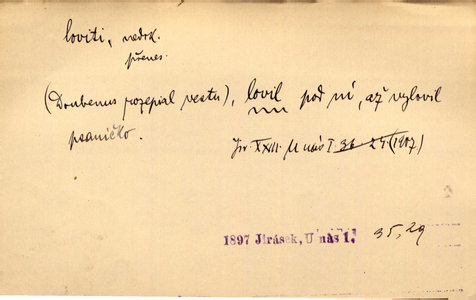 loviti, nedok.
přenes.
(Doubenus rozepial vestu), lovil pod ní, až vylovil
psaníčko.
Jir. XXIII. U nás I 36 - 29 (1907)
1897 Jirásek, U nás 1, 35, 29